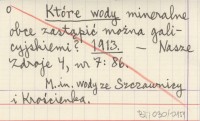 Które wody mineralne
obce zastąpić można gali-
cyjskiemi? 1913. — Nasze
Zdroje 4, nr 7: 86.
M.in. wody ze Szczawnicy
i Krościenka.